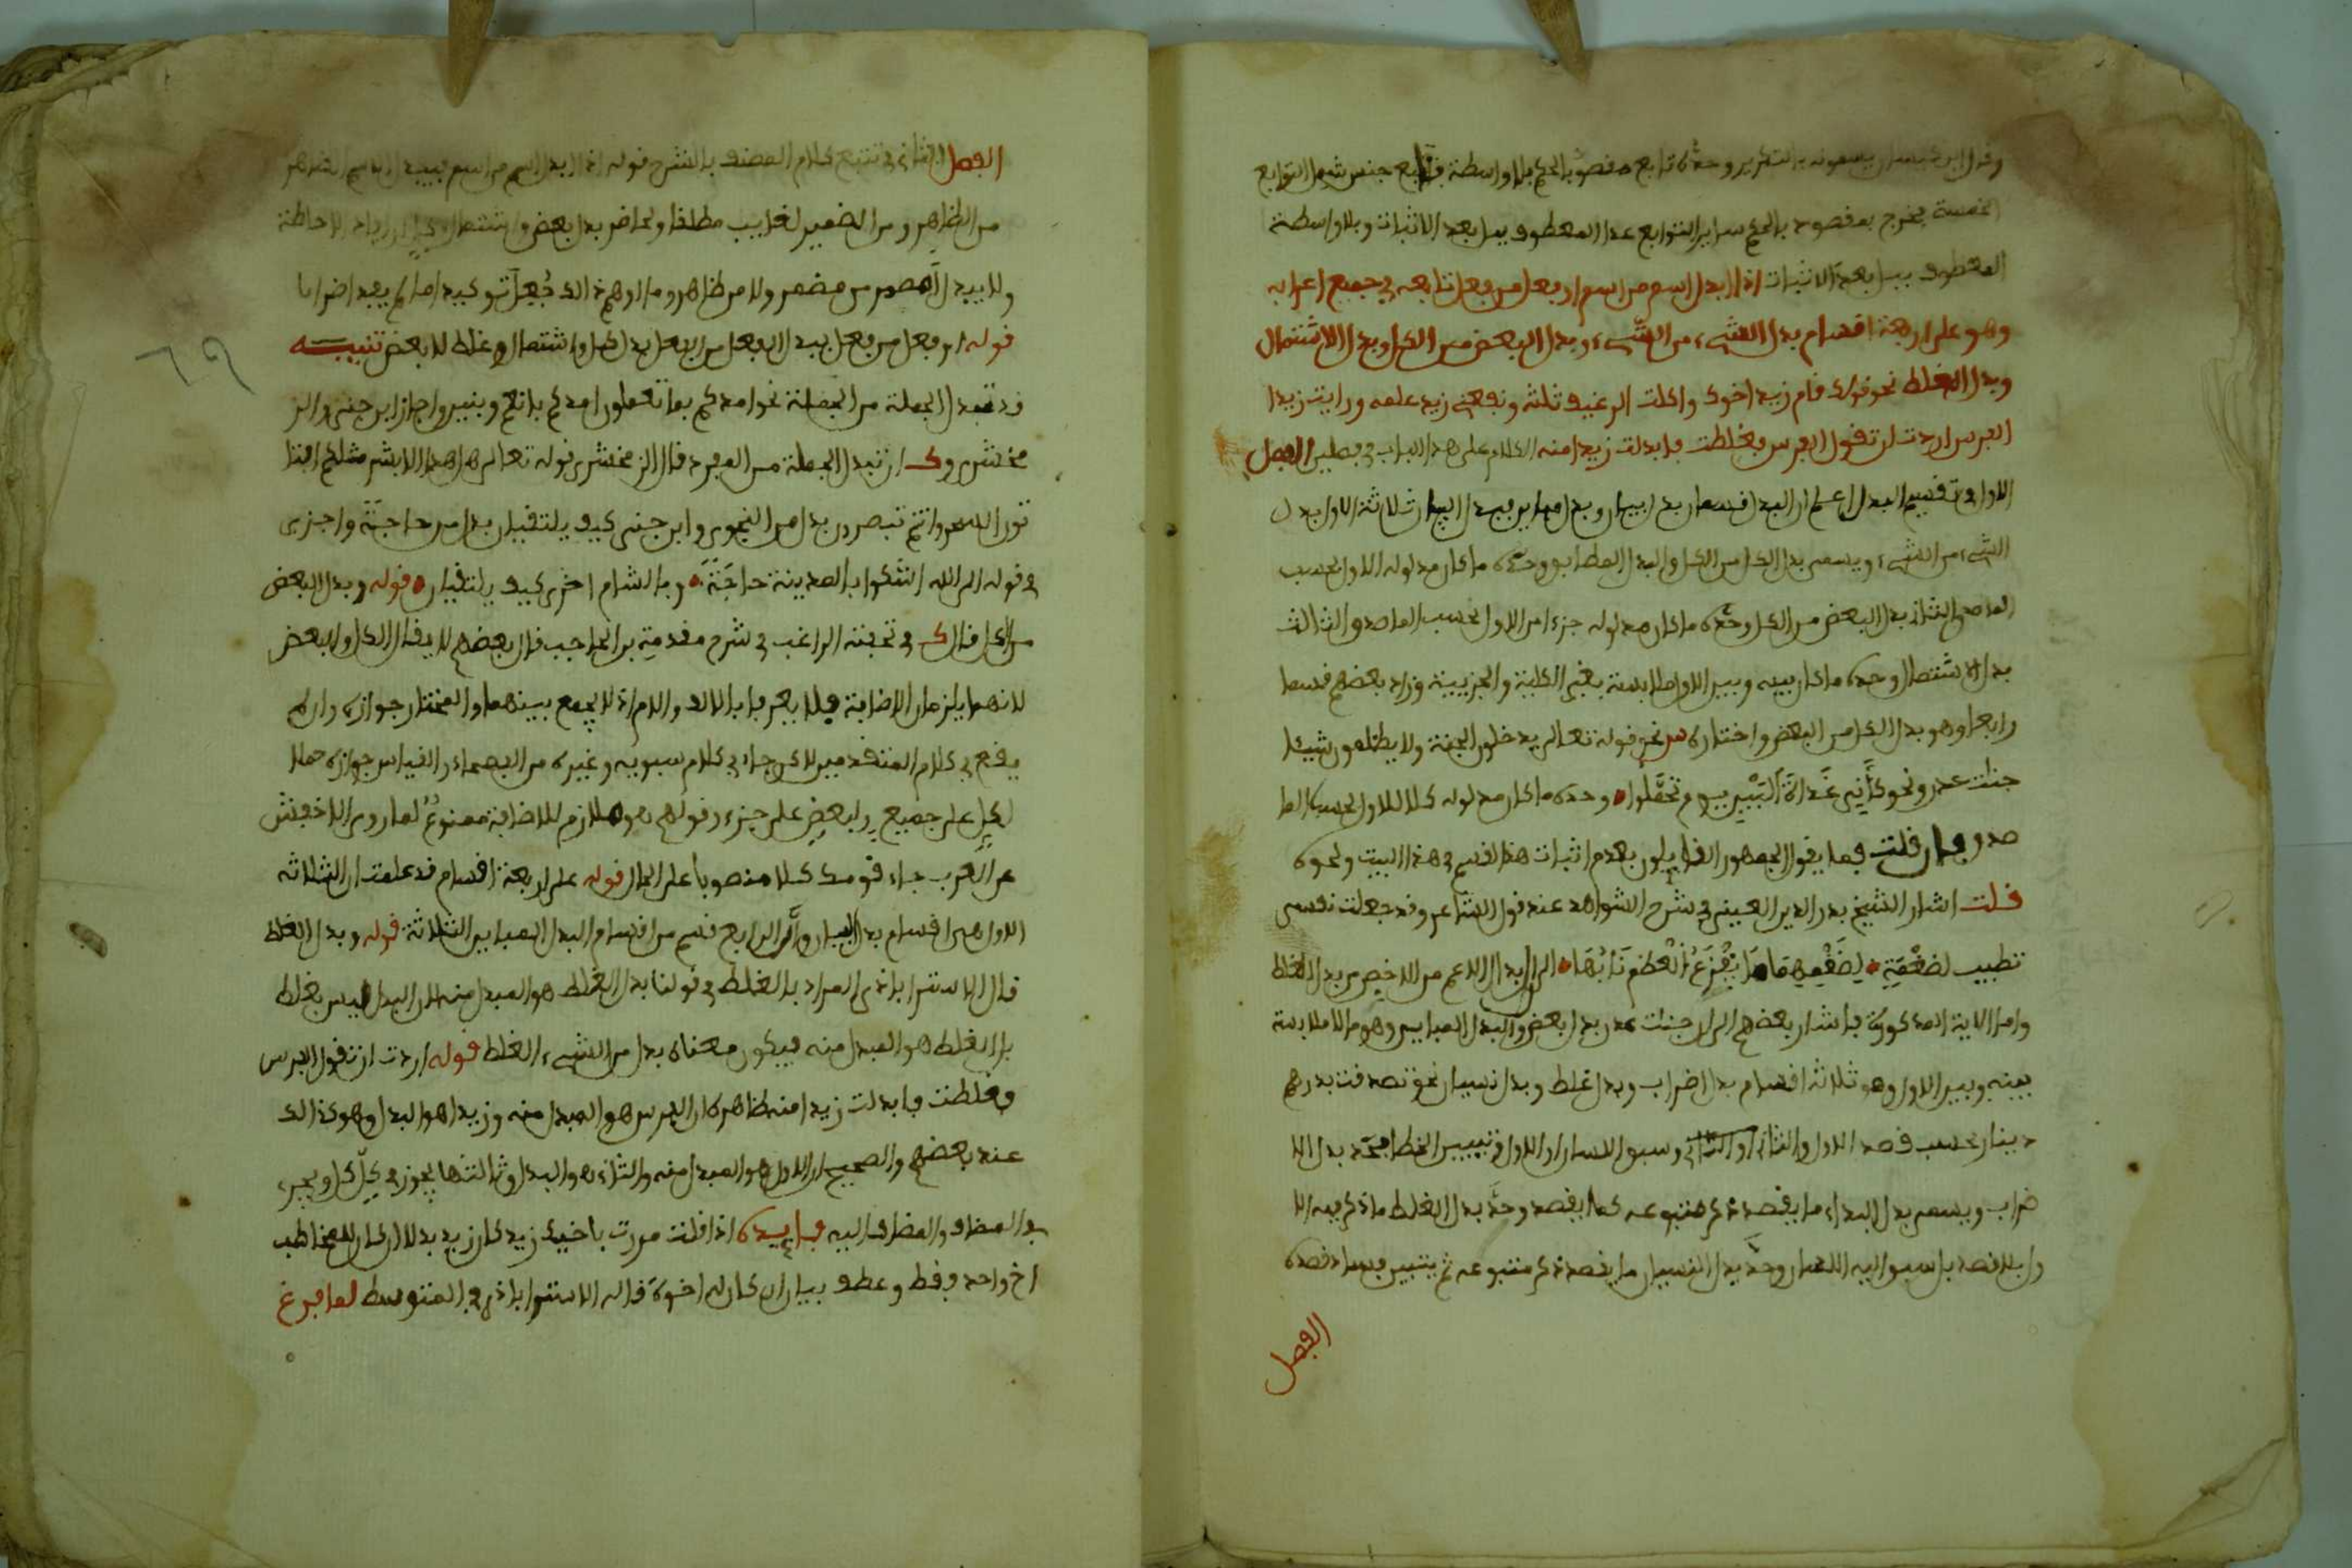 وقال ابن كيسان يسمونه بالتكرير وحده تابع مقصود بالحكم بلا واسطة فتابع جنس شمل التوابع
الخمسة يخرج بمقصود بالحكم ساير التوابع عدا المعطوف ببل بعد الاثبات وبلا واسطة
المعطوف ببل بعد الاثبات اذا ابدل اسم من اسم او فعل من فعل تابعه في جميع اعرابه
وهو على اربعة اقسام بدل الشيء من الشيء وبدل البعض من الكل وبدل الاشتمال
وبدل الغلط نحو قولك قام زيد اخوك واكلت الرغيف ثلثه ونفعني زيد علمه ورايت زيدا
الفرس اردت ان تقول الفرس فغلطت فابدلت زيدا منه الكلام على هذا الباب في فصلين الفصل
الاول في تقسيم البدل اعلم ان البدل قسمان بدل بيان وبدل مباين فبدل البيان ثلاثة الاول بدل
الشيء من الشيء ويسمى بدل الكل من الكل والبدل المطابق وحده ما كان مدلوله الاول بحسب
الماصدق الثاني بدل البعض من الكل وحده ما كان مدلوله جزءا من الاول بحسب الماصدق الثالث
بدل الاشتمال وحده ما كان بينه وبين الاول ملابسة بغير الكلية والجزيية وزاد بعضهم قسما
رابعا وهو بدل الكل من البعض واختاره س نحو قوله تعالى يدخلون الجنة ولا يظلمون شيئا
جنات عدن ونحو كأني غداة البين يوم تحملوا وحده ما كان مدلوله كلا للاول بحسب الما
صدق فان قلت فما يقول الجمهور القايلون بعدم اثبات هذا القسم في هذا البيت ونحوه
قلت اشار الشيخ بدر الدين العيني في شرح الشواهد عند قول الشاعر وقد جعلت نفسي
تطيب لضغمة لضغمهما يقرع العظم نابها الى ابدال الاعم من الاخص من بدل الغلط
واما الاية المذكورة فاشار بعضهم الى ان جنات عدن بدل بعض والبدل المباين وهو ما لا ملابسة
بينه وبين الاول وهو ثلاثة اقسام بدل اضراب وبدل غلط وبدل نسيان نحو تصدقت بدرهم
دينار بحسب قصد الاول والثاني او الثاني وسبق اللسان او الاول وتبيين الخطا فحد بدل الا
ضراب ويسمى بدل البداء ما يقصد ذكر متبوعه كما يقصد وحد بدل الغلط ما ذكر فيه الا
ول بلا قصد بل سبق اليه اللسان وحد بدل النسيان ما يقصد ذكر متبوعه ثم يتبين فساد قصده
الفصل
الفصل الثاني في تتبع كلام المصنف بالشرح قوله اذا ابدل اسم من اسم فيبدل الاسم الظاهر
من الظاهر ومن الضمير لغايب مطلقا ولحاضر بدل بعض واشتمال وكل ان افاد الاحاطة
ولا يبدل المضمر من مضمر ولا من ظاهر وما اوهم ذالك جعل توكيدا ما لم يفد اضرابا
قوله او فعل من فعل يبدل الفعل من الفعل بدل كل واشتمال وغلط لا بعض تنبيه
قد تبدل الجملة من الجملة نحو امدكم بما تعلمون امدكم بانعام وبنين واجاز ابن جني والز
مخشري وك ان تبدل الجملة من المفرد قال الزمخشري قوله تعالى هل هذا الا بشر مثلكم افتا
تون السحر وانتم تبصرون بدل من النجوى وابن جني كيف يلتقيان بدل من حاجة واخرى
في قوله الى الله اشكوا بالمدينة حاجة وبالشام اخرى كيف يلتقيان قوله وبدل البعض
من الكل قال ك في تحفته الراغب في شرح مقدمة بن الحاجب قال بعضهم لا يقال الكل والبعض
لانهما يلزمان الاضافة فلا يعرفا بالالف واللام اذ لا يجمع بينهما والمختار جوازه وان لم
يقع في كلام المتقدمين لاكن جاء في كلام سبويه وغيره من الفصحاء والقياس جوازه حملا
لكل على جميع ولبعض على جزء وقولهم هو ملازم للاضافة ممنوع لما روى الاخفش
عن العرب جاء قومك كلا منصوبا على الحال قوله على اربعة اقسام قد علمت ان الثلاثه
الاول هي اقسام بدل البيان وان الرابع قسم من اقسام البدل المباين الثلاثة قوله وبدل الغلط
قال الاستراباذي المراد بالغلط في قولنا بدل الغلط هو المبدل منه لان البدل ليس بغلط
بل الغلط هو المبدل منه فيكون معناه بدل من الشيء الغلط قوله اردت ان تقول الفرس
فغلطت فابدلت زيدا منه ظاهره ان الفرس هو المبدل منه وزيدا هو البدل وهو كذالك
عند بعضهم والصحيح ان الاول هو المبدل منه والثاني هو البدل وثالثها يجوز في كل كل ويجري
بدل المضاف والمضاف اليه فايدة اذا قلت مررت باخيك زيد كان زيد بدلا ان كان للمخاطب
اخ واحد فقط وعطف بيان ان كان له اخوة قاله الاستراباذي في المتوسط لما فرغ